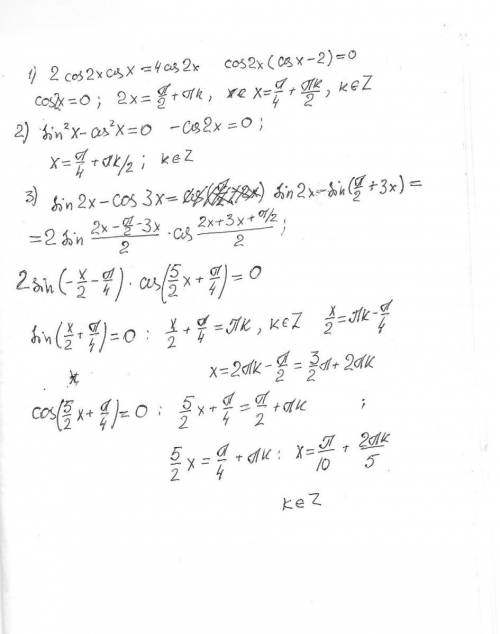 1) 2 cos2x cosx = 4cos2x   cos2x(cosx-2)=0
cos2x=0; 2x = π/2 + πk, x = π/4 + πk/2, k∈Z
2) sin²x - cos²x = 0   -cos2x = 0;
x = π/4 + πk/2; k∈Z
3) sin2x - cos3x = sin2x - sin(π/2 + 3x) =
= 2 sin (2x - π/2 - 3x)/2 · cos (2x + 3x + π/2)/2;
2 sin(-x/2 - π/4) · cos(5/2 x + π/4) = 0
sin(x/2 + π/4) = 0 : x/2 + π/4 = πk, k∈Z   x/2 = πk - π/4
x = 2πk - π/2 = 3/2 π + 2πk
cos(5/2 x + π/4) = 0 ; 5/2 x + π/4 = π/2 + πk ;
5/2 x = π/4 + πk : x = π/10 + 2πk/5
k∈Z